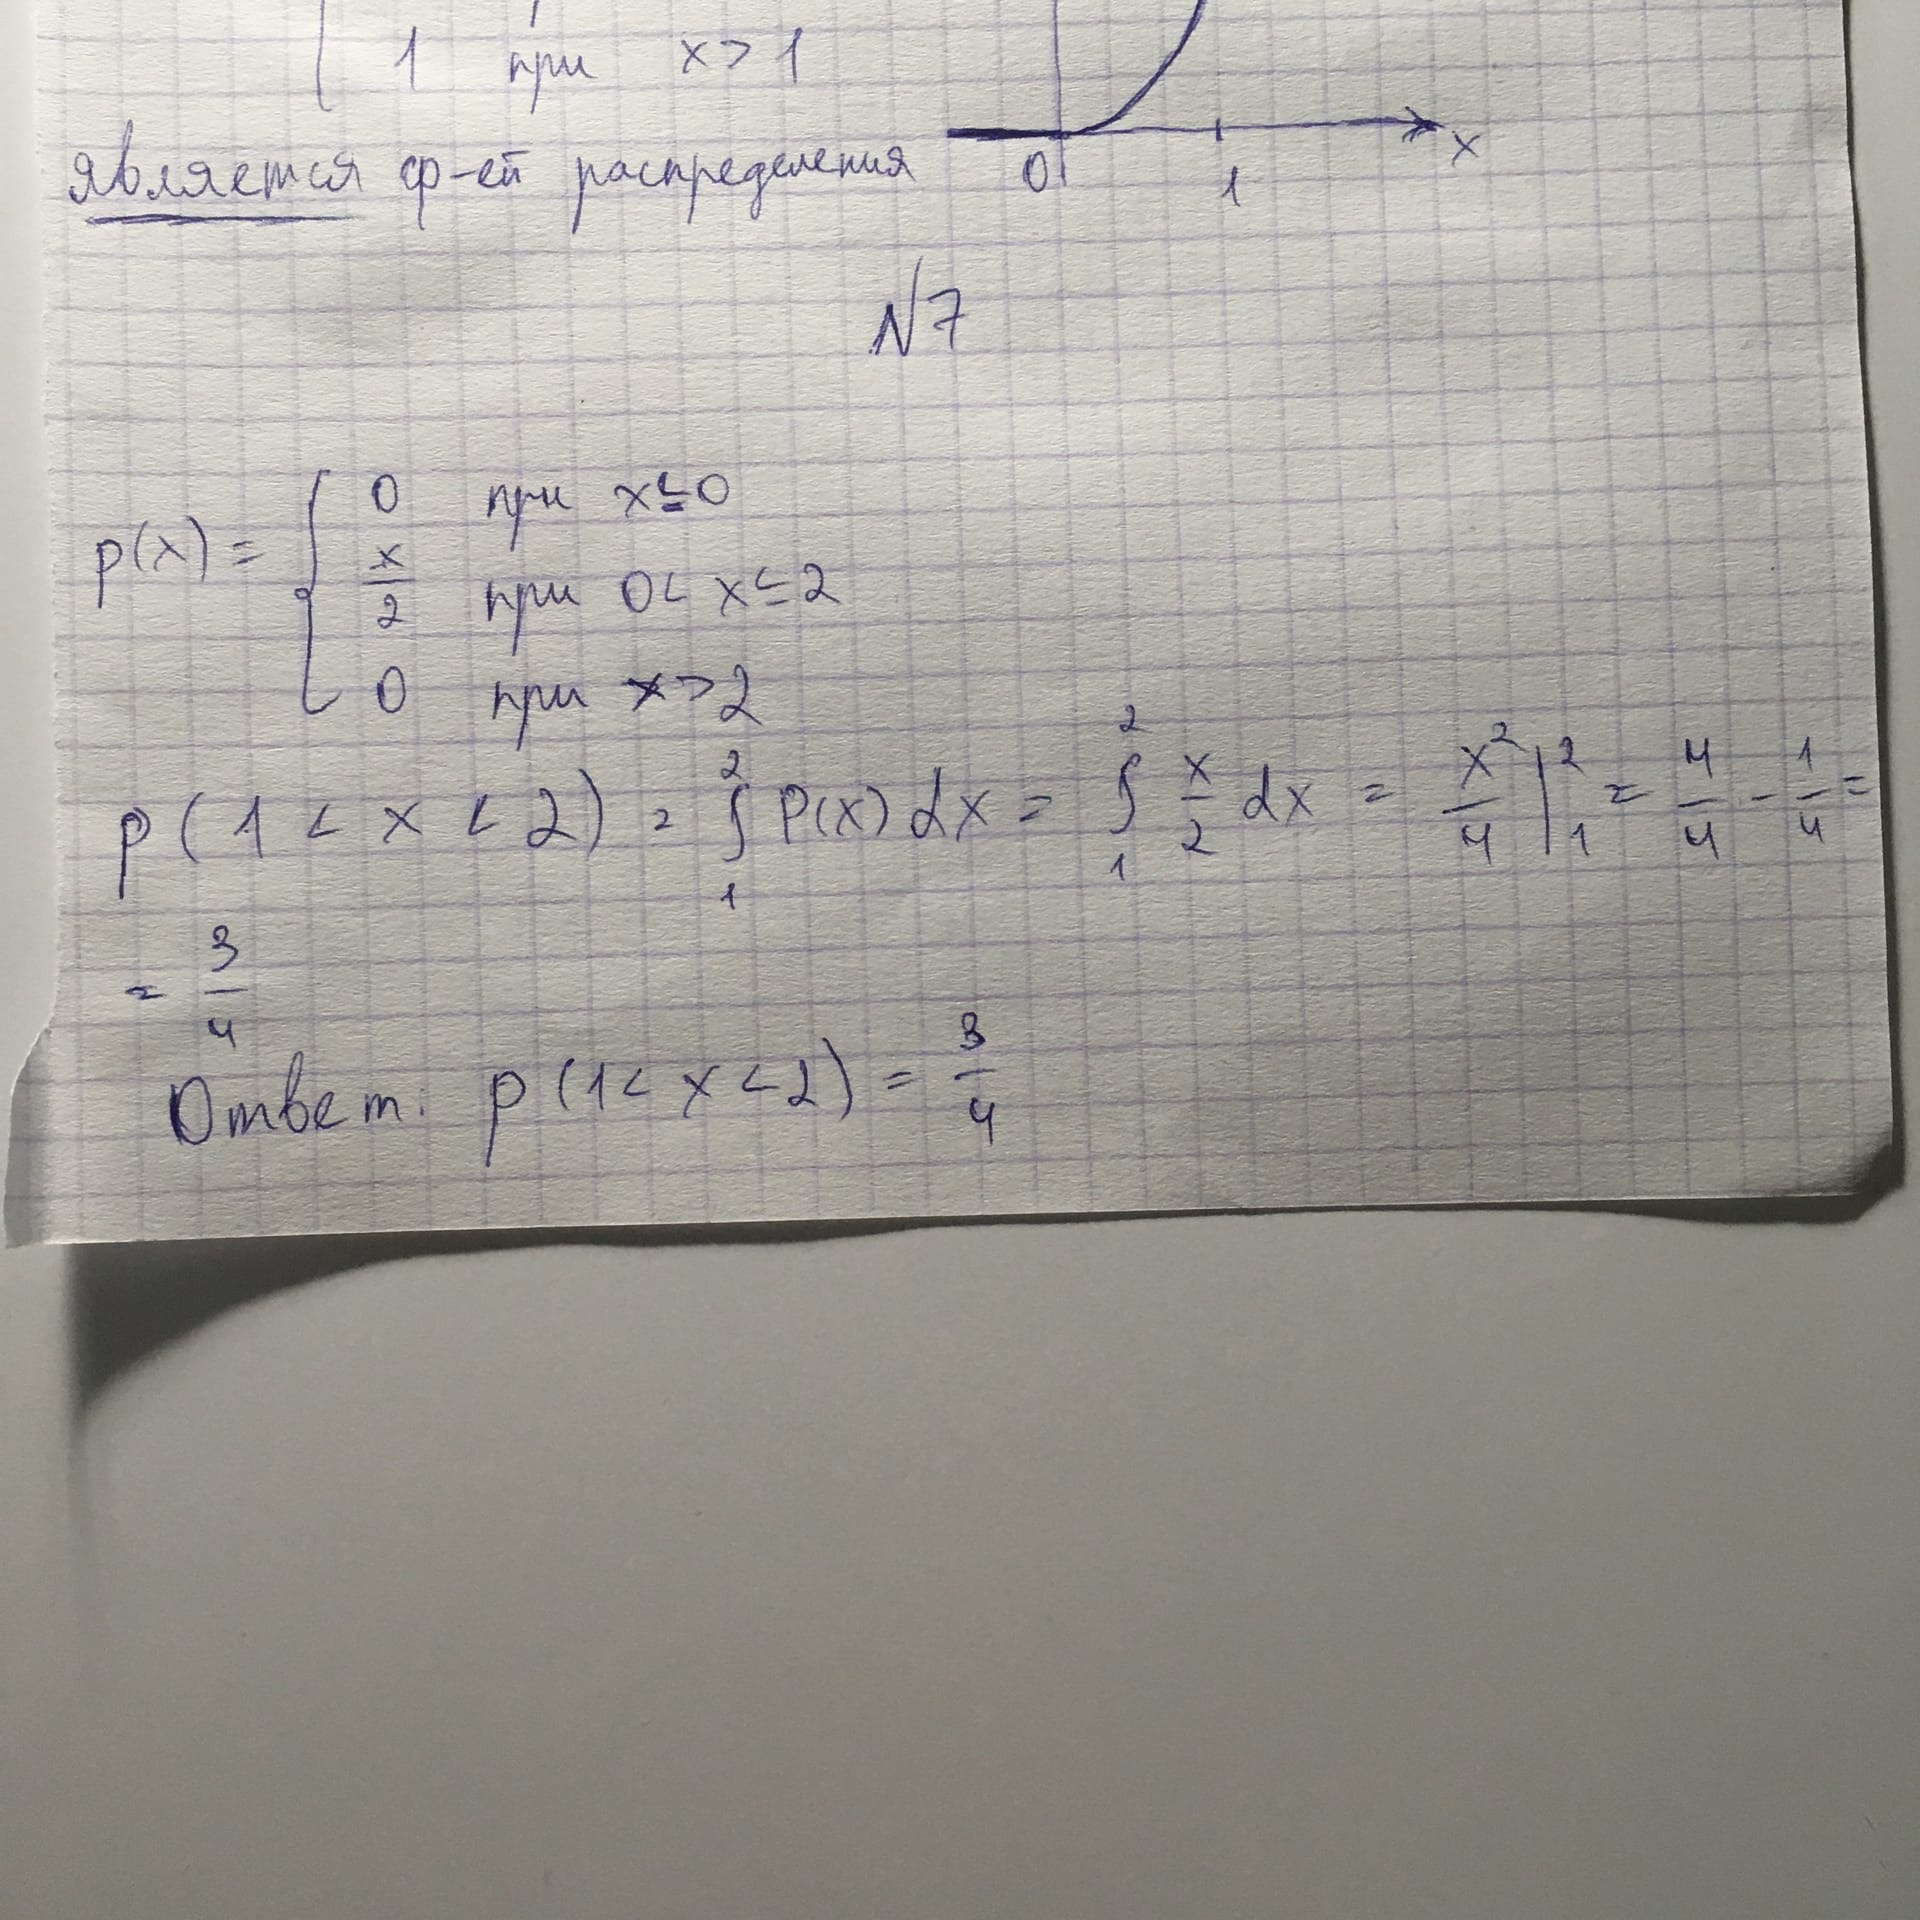 1 при x > 1
является ф-ей распределения
0 1 x
N7
p(x) = { 0 при x ≤ 0
x/2 при 0 < x ≤ 2
0 при x > 2
p(1 < x < 2) = ∫₁² P(x) dx = ∫₁² x/2 dx = x²/4 |₁² = 4/4 - 1/4 =
= 3/4
Ответ: p(1 < x < 2) = 3/4